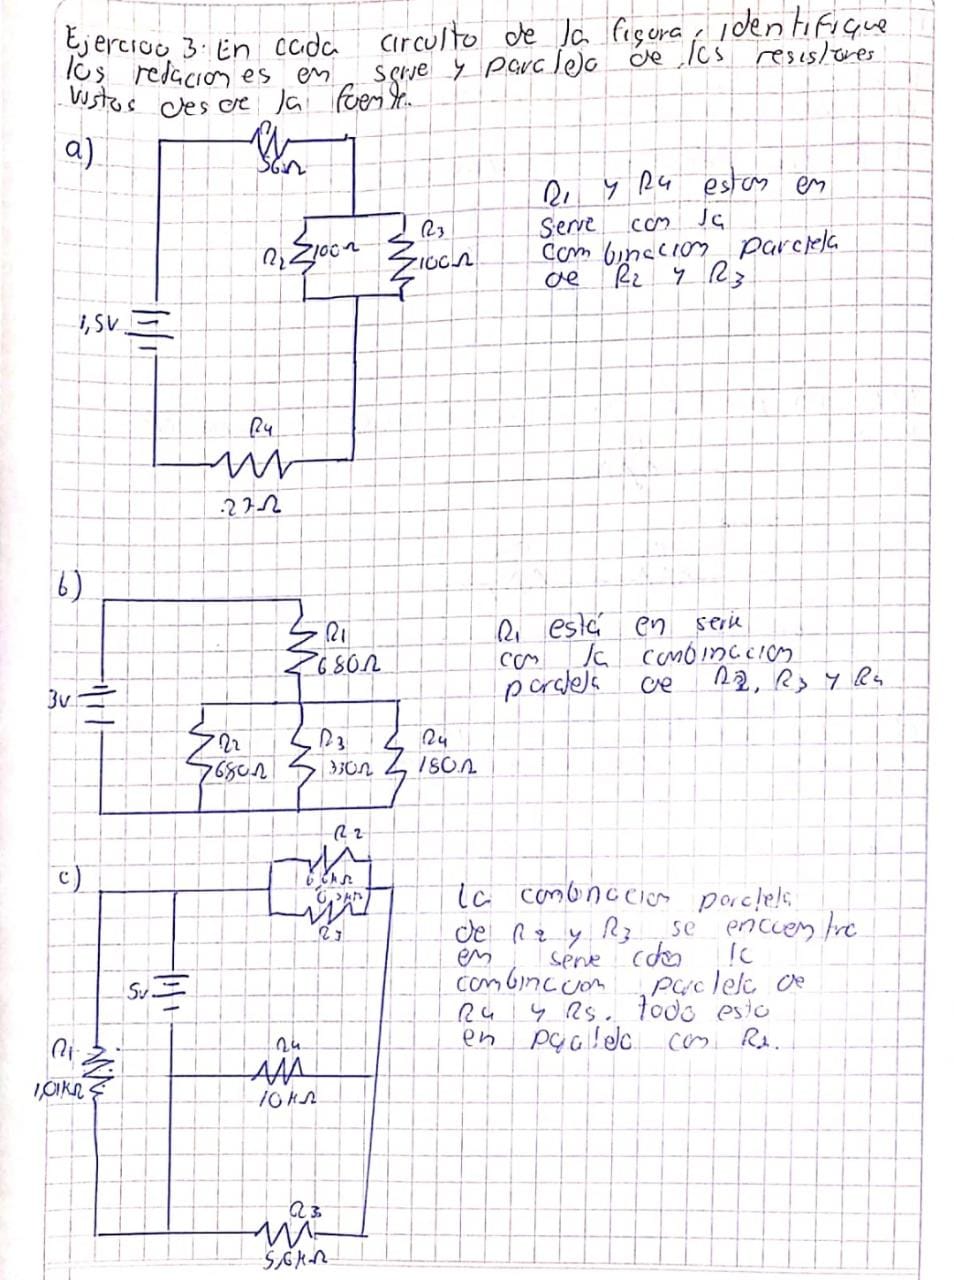 Ejercicio 3. En cada circuito de la figura, identifique
las relaciones en serie y paralelo de los resistores
vistos desde la fuente.
a)
56Ω
R2 100Ω
R3
100Ω
1,5V
R4
27Ω
R1 y R4 estan en
serie con la
combinacion paralela
de R2 y R3
b)
R1
680Ω
3v
R2
680Ω
R3
330Ω
R4
180Ω
R1 está en serie
con la combinacion
paralela de R2, R3 y R4
c)
R2
R3
5v
R1
1,01KΩ
R4
10KΩ
R3
5,6KΩ
la combinacion paralela
de R2 y R3 se encuentra
en serie con la
combinacion paralela de
R4 y R5. todo esto
en paralelo con R1.